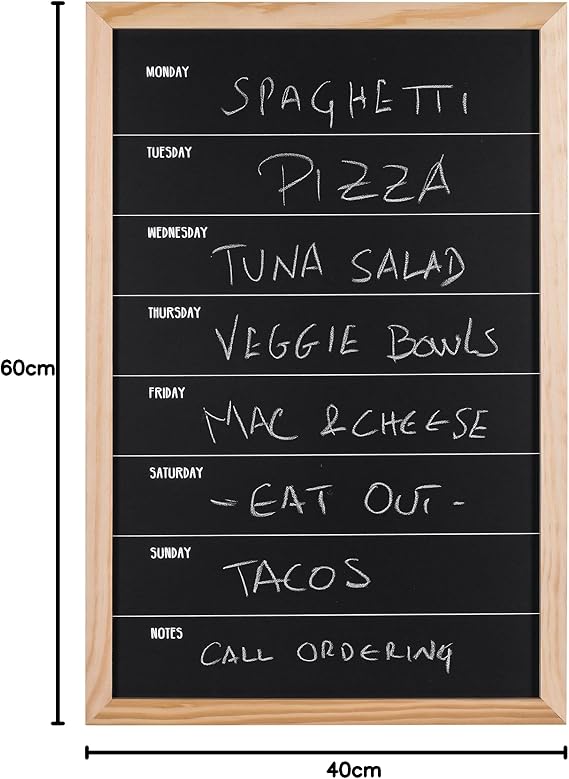 MONDAY
SPAGHETTI
TUESDAY
PIZZA
WEDNESDAY
TUNA SALAD
THURSDAY
VEGGIE BOWLS
FRIDAY
MAC & CHEESE
SATURDAY
- EAT OUT -
SUNDAY
TACOS
NOTES
CALL ORDERING
60cm
40cm